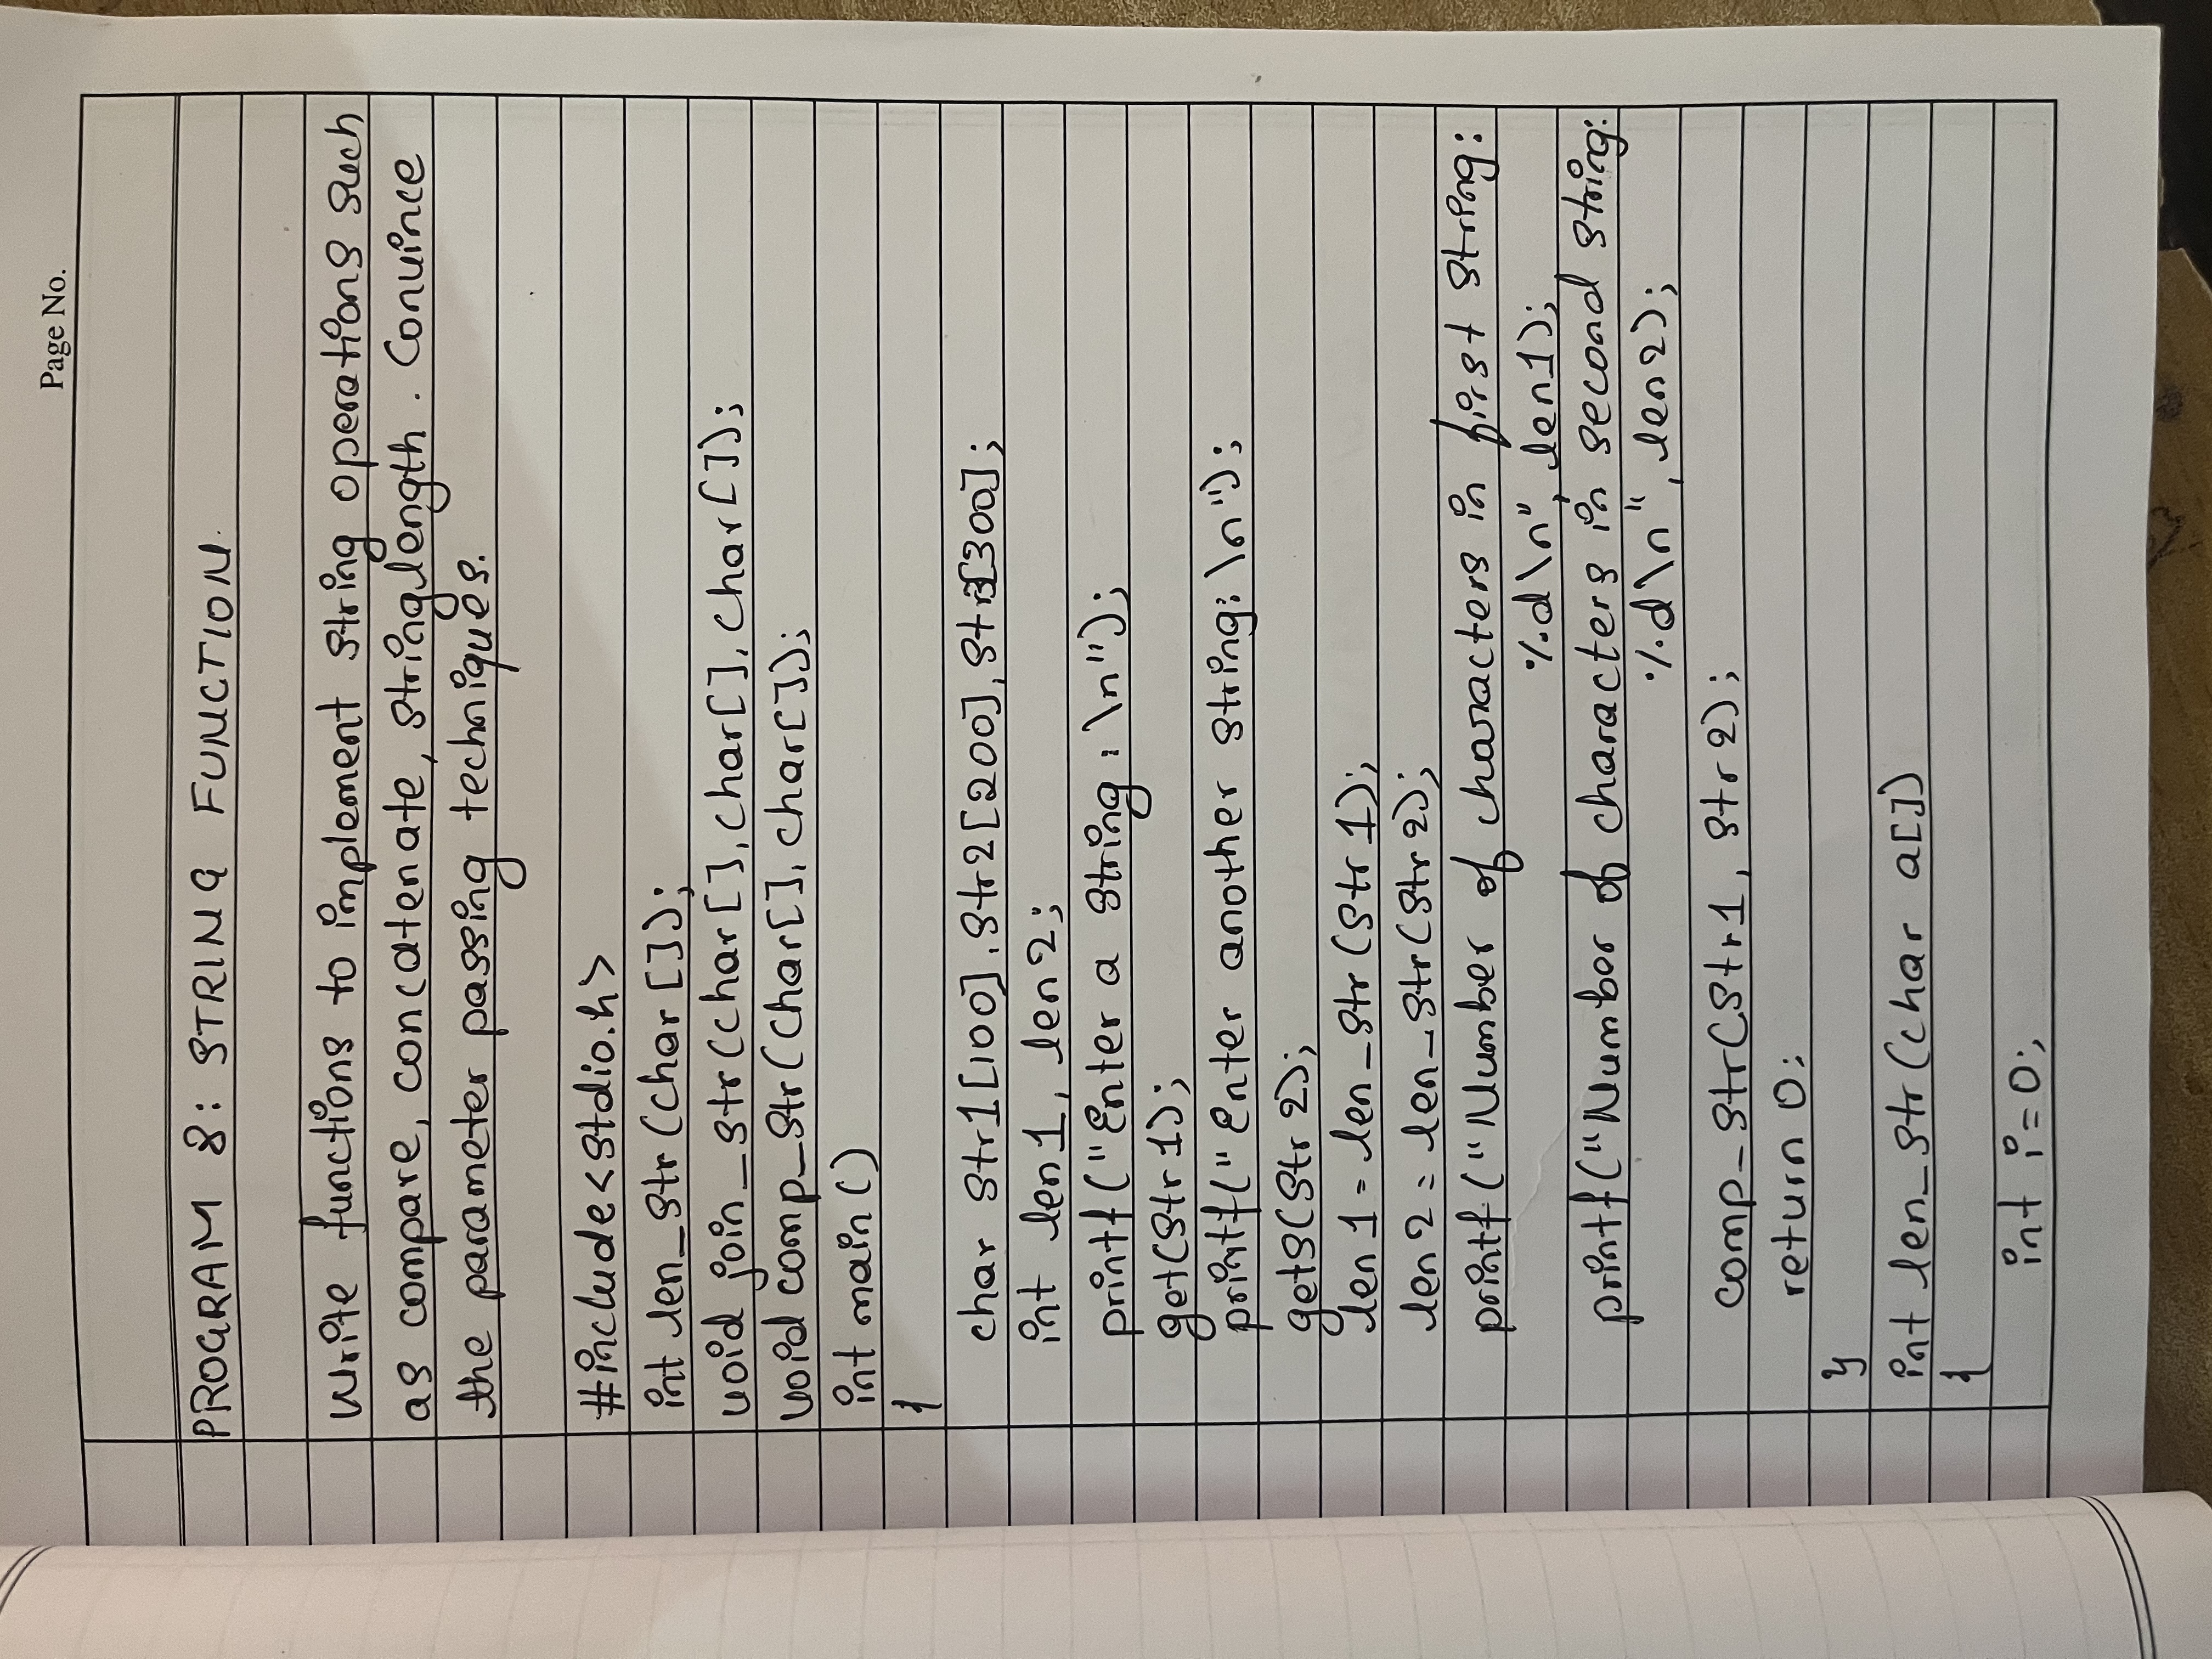 Page No.
PROGRAM 8: STRING FUNCTION.
Write functions to implement string operations such
as compare, concatenate, stringlength. Convince
the parameter passing techniques.
#include<stdio.h>
int len_str(char[]);
void join_str(char[], char[], char[]);
void comp_str(char[], char[]);
int main()
{
char str1[100], str2[200], str3[300];
int len1, len2;
printf("Enter a string: \n");
get(str1);
printf("Enter another string: \n");
gets(str2);
len1 = len_str(str1);
len2 = len_str(str2);
printf("Number of characters in first string:
%d\n", len1);
printf("Number of characters in second string:
%d\n", len2);
comp_str(str1, str2);
return 0;
}
int len_str(char a[])
{
int i=0;